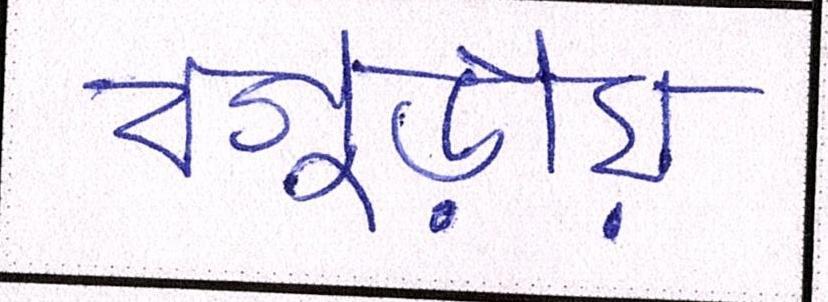 বগুড়ায়